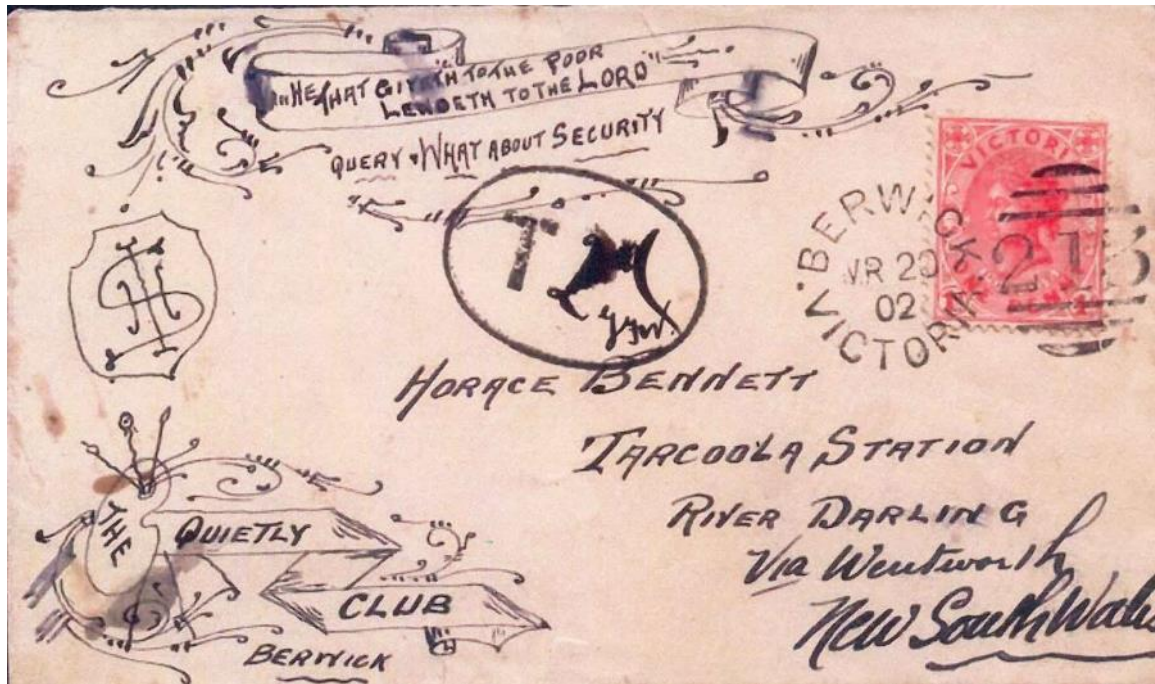 "HE THAT GIVETH TO THE POOR
LENDETH TO THE LORD"
QUERY WHAT ABOUT SECURITY
VICTORIA
BERWICK
20
02
VICTORIA
T
HORACE BENNETT
TARCOOLA STATION
RIVER DARLING
Via Wentworth
New South Wales
THE
QUIETLY
CLUB
BERWICK